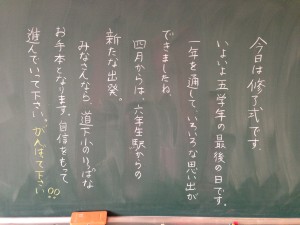 今日は修了式です。
いよいよ五学年の最後の日です。
一年を通して、いろいろな思い出が
できましたね。
四月からは、六年生駅からの
新たな出発。
みなさんなら、道下小のりっぱな
お手本となります。自信をもって
進んでいって下さい。がんばって下さい!!